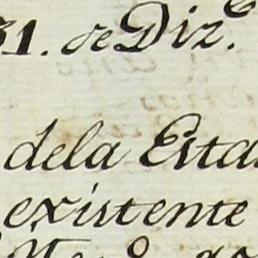 31. de Diz.e
dela Esta
existente